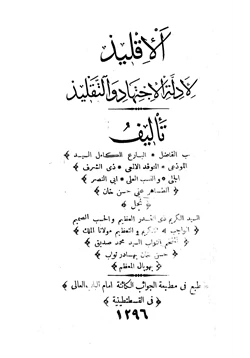 الاقليد
لادلة الاجتهاد والتقليد
تأليف
الفاضل * البارع الكامل السيد
ذى الشرف
والنسب العلى * ابى النصر
على حسن خان
نجل
السيد الكريم ذى القدر العظيم والحسب الصميم
التكريم والتعظيم مولانا الملك
النواب السيد محمد صديق
حسن خان بهادر نواب
بهوپال المعظم
طبع فى مطبعة الجوائب الكائنة امام الباب العالى
فى القسطنطينية
١٢٩٦